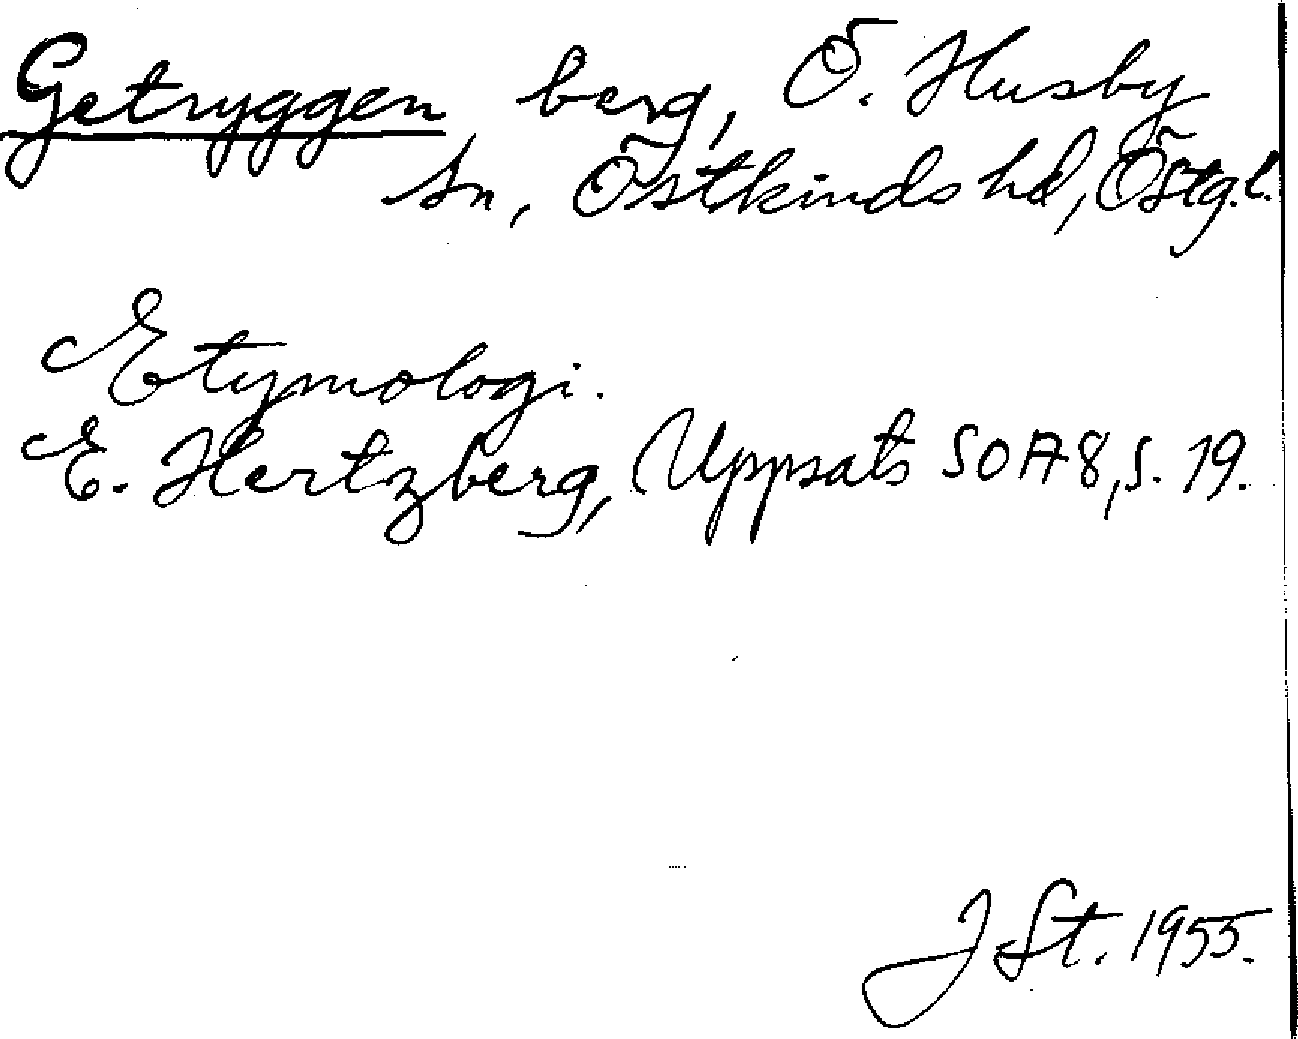 Getryggen, berg, Ö. Husby
sn, Östkinds hd, Östg.l.
Etymologi.
E. Hertzberg, Uppsats SOA 8, s. 19.
J St. 1955.